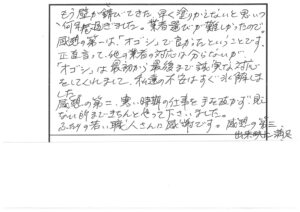 もう壁が錆びてきた。早く塗りかえないと思いつつ
何年も過ぎました。業者選びが難しかったので、
感想の第一は「オゴシ」で良かったということです。
正直言って他の業者の対応は分らないが
「オゴシ」は最初から最後まで誠実な対応
をしてくれまして、私達の不安はすぐに解消しま
した。
感想の第二、寒い時期の仕事を手を抜かず見え
ない所まできちんとやって下さいました。
ふたりの若い職人さんに感謝です。感想の第三、
出来映に満足